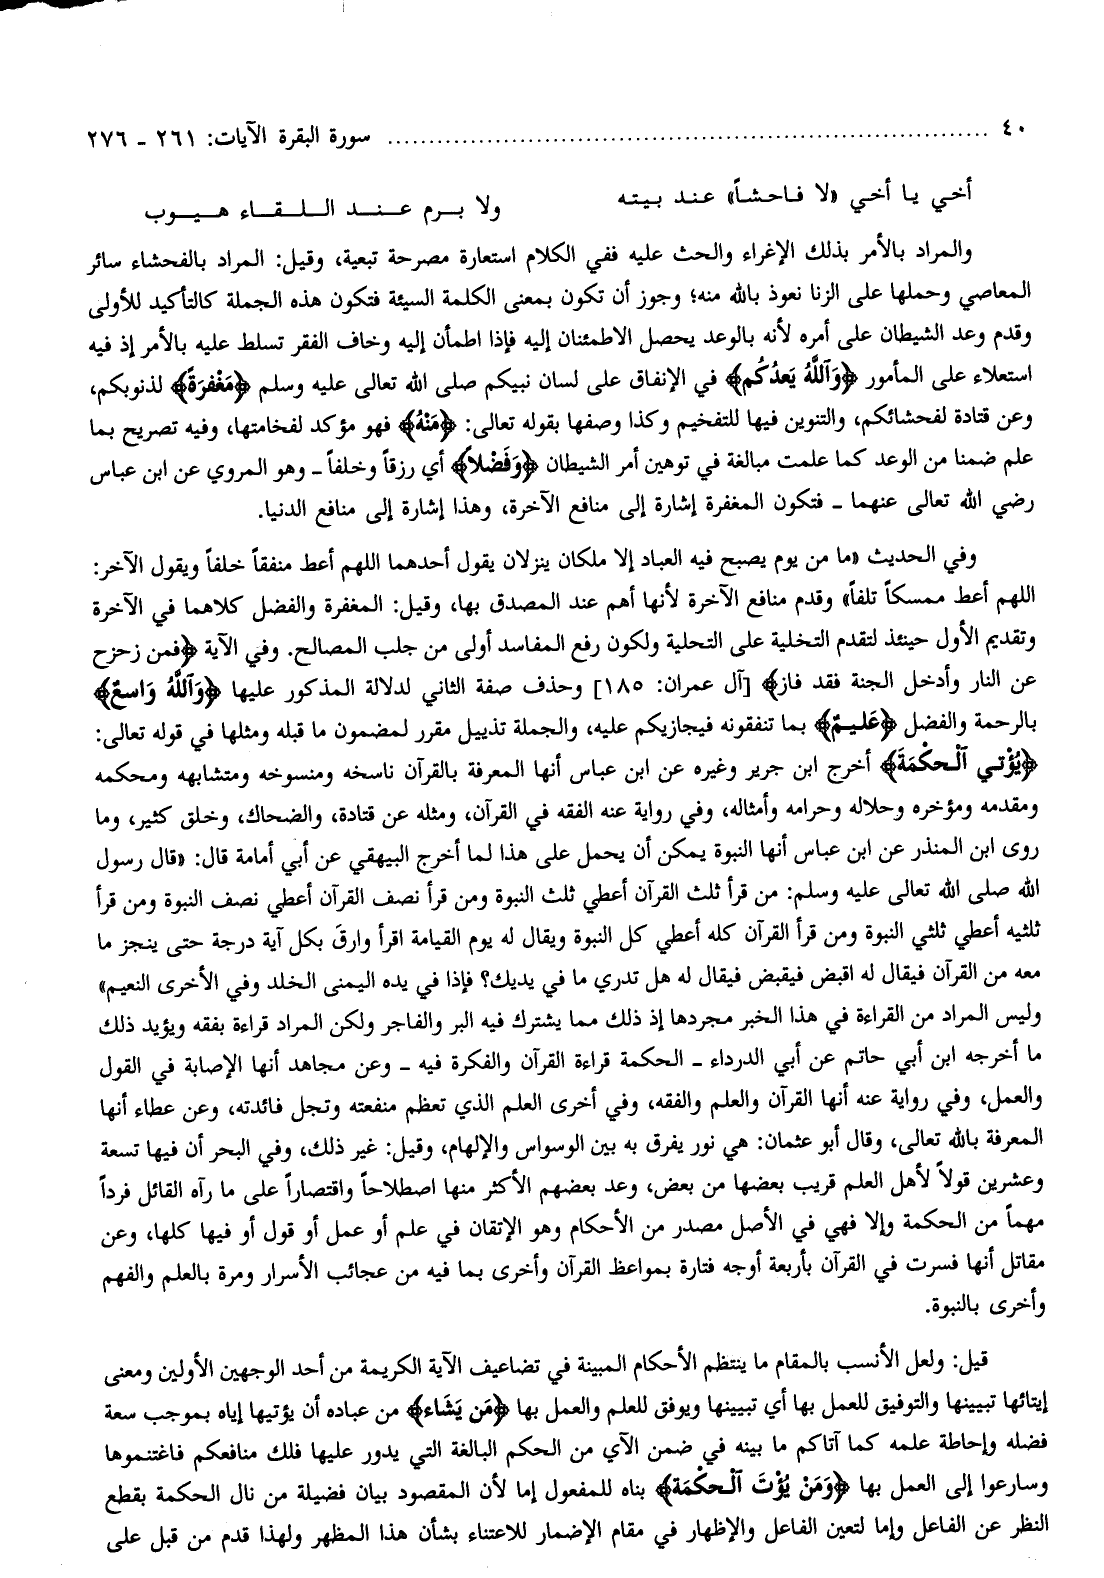 ٤٠ ........ سورة البقرة الآيات: ٢٦١ ـ ٢٧٦
أخي يا أخي «لا فاحشاً» عند بيته ولا برم عند اللقاء هيوب
والمراد بالأمر بذلك الإغراء والحث عليه ففي الكلام استعارة مصرحة تبعية، وقيل: المراد بالفحشاء سائر
المعاصي وحملها على الزنا نعوذ بالله منه؛ وجوز أن تكون بمعنى الكلمة السيئة فتكون هذه الجملة كالتأكيد للأولى
وقدم وعد الشيطان على أمره لأنه بالوعد يحصل الاطمئنان إليه فإذا اطمأن إليه وخاف الفقر تسلط عليه بالأمر إذ فيه
استعلاء على المأمور ﴿وَٱللَّهُ يَعدُكُم﴾ في الإنفاق على لسان نبيكم صلى الله تعالى عليه وسلم ﴿مَغْفرَةً﴾ لذنوبكم،
وعن قتادة لفحشائكم، والتنوين فيها للتفخيم وكذا وصفها بقوله تعالى: ﴿مِّنْهُ﴾ فهو مؤكد لفخامتها، وفيه تصريح بما
علم ضمنا من الوعد كما علمت مبالغة في توهين أمر الشيطان ﴿وَفَضْلاً﴾ أي رزقاً وخلفاً ـ وهو المروي عن ابن عباس
رضي الله تعالى عنهما ـ فتكون المغفرة إشارة إلى منافع الآخرة، وهذا إشارة إلى منافع الدنيا.
وفي الحديث «ما من يوم يصبح فيه العباد إلا ملكان ينزلان يقول أحدهما اللهم أعط منفقاً خلفاً ويقول الآخر:
اللهم أعط ممسكاً تلفاً» وقدم منافع الآخرة لأنها أهم عند المصدق بها، وقيل: المغفرة والفضل كلاهما في الآخرة
وتقديم الأول حينئذ لتقدم التخلية على التحلية ولكون رفع المفاسد أولى من جلب المصالح. وفي الآية ﴿فمن زحزح
عن النار وأدخل الجنة فقد فاز﴾ [آل عمران: ١٨٥] وحذف صفة الثاني لدلالة المذكور عليها ﴿وَٱللَّهُ وَاسعٌ﴾
بالرحمة والفضل ﴿عَليمٌ﴾ بما تنفقونه فيجازيكم عليه، والجملة تذييل مقرر لمضمون ما قبله ومثلها في قوله تعالى:
﴿يُؤْتي ٱلْحكْمَةَ﴾ أخرج ابن جرير وغيره عن ابن عباس أنها المعرفة بالقرآن ناسخه ومنسوخه ومتشابهه ومحكمه
ومقدمه ومؤخره وحلاله وحرامه وأمثاله، وفي رواية عنه الفقه في القرآن، ومثله عن قتادة، والضحاك، وخلق كثير، وما
روى ابن المنذر عن ابن عباس أنها النبوة يمكن أن يحمل على هذا لما أخرج البيهقي عن أبي أمامة قال: «قال رسول
الله صلى الله تعالى عليه وسلم: من قرأ ثلث القرآن أعطي ثلث النبوة ومن قرأ نصف القرآن أعطي نصف النبوة ومن قرأ
ثلثيه أعطي ثلثي النبوة ومن قرأ القرآن كله أعطي كل النبوة ويقال له يوم القيامة اقرأ وارقَ بكل آية درجة حتى ينجز ما
معه من القرآن فيقال له اقبض فيقبض فيقال له هل تدري ما في يديك؟ فإذا في يده اليمنى الخلد وفي الأخرى النعيم»
وليس المراد من القراءة في هذا الخبر مجردها إذ ذلك مما يشترك فيه البر والفاجر ولكن المراد قراءة بفقه ويؤيد ذلك
ما أخرجه ابن أبي حاتم عن أبي الدرداء ـ الحكمة قراءة القرآن والفكرة فيه ـ وعن مجاهد أنها الإصابة في القول
والعمل، وفي رواية عنه أنها القرآن والعلم والفقه، وفي أخرى العلم الذي تعظم منفعته وتجل فائدته، وعن عطاء أنها
المعرفة بالله تعالى، وقال أبو عثمان: هي نور يفرق به بين الوسواس والإلهام، وقيل: غير ذلك، وفي البحر أن فيها تسعة
وعشرين قولاً لأهل العلم قريب بعضها من بعض، وعد بعضهم الأكثر منها اصطلاحاً واقتصاراً على ما رآه القائل فرداً
مهماً من الحكمة وإلا فهي في الأصل مصدر من الأحكام وهو الإتقان في علم أو عمل أو قول أو فيها كلها، وعن
مقاتل أنها فسرت في القرآن بأربعة أوجه فتارة بمواعظ القرآن وأخرى بما فيه من عجائب الأسرار ومرة بالعلم والفهم
وأخرى بالنبوة.
قيل: ولعل الأنسب بالمقام ما ينتظم الأحكام المبينة في تضاعيف الآية الكريمة من أحد الوجهين الأولين ومعنى
إيتائها تبيينها والتوفيق للعمل بها أي تبيينها ويوفق للعلم والعمل بها ﴿مَن يَشَاء﴾ من عباده أن يؤتيها إياه بموجب سعة
فضله وإحاطة علمه كما آتاكم ما بينه في ضمن الآي من الحكم البالغة التي يدور عليها فلك منافعكم فاغتنموها
وسارعوا إلى العمل بها ﴿وَمَنْ يُؤْتَ ٱلْحكْمَة﴾ بناه للمفعول إما لأن المقصود بيان فضيلة من نال الحكمة بقطع
النظر عن الفاعل وإما لتعين الفاعل والإظهار في مقام الإضمار للاعتناء بشأن هذا المظهر ولهذا قدم من قبل على